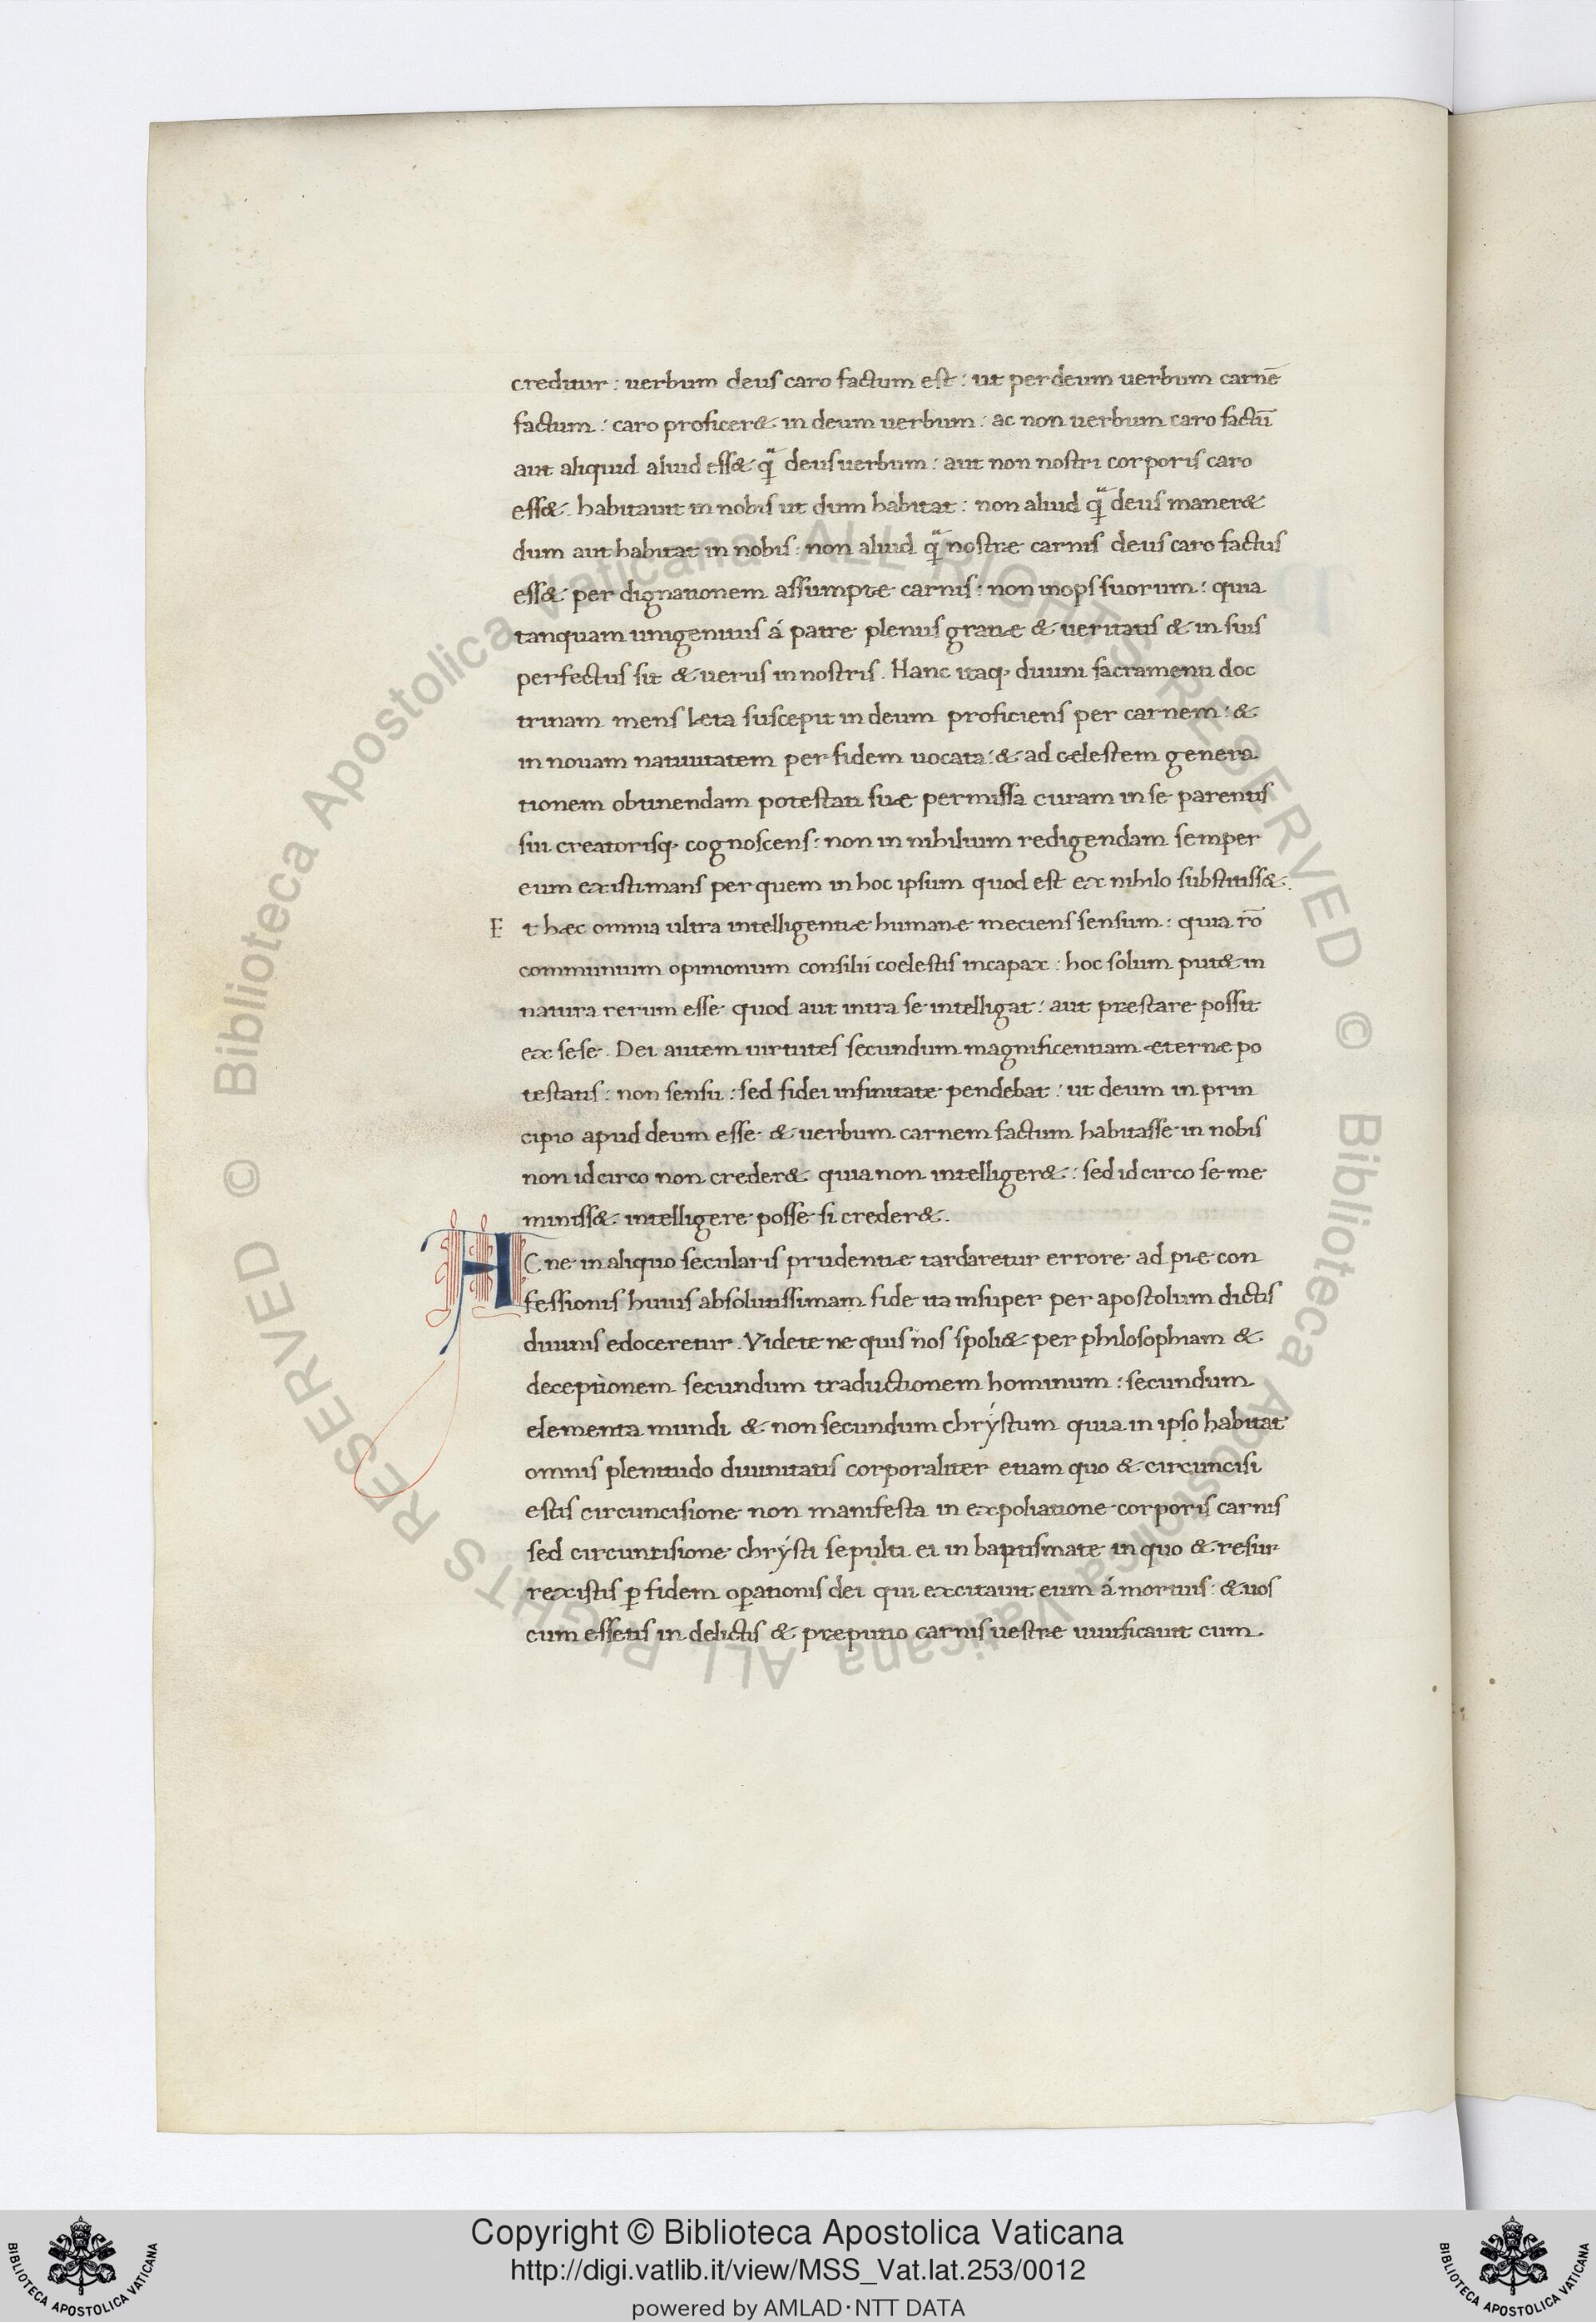 creditur: uerbum deus caro factum est: ut per deum uerbum carnē
factum: caro proficer& in deum uerbum: ac non uerbum caro factū
aut aliquid aliud ess& q̄ deus uerbum: aut non nostri corporis caro
ess&. habitauit in nobis ut dum habitat: non aliud q̄ deus maner&
dum aut habitat in nobis: non aliud q̄ nostræ carnis deus caro factus
ess& per dignationem assumptæ carnis: non inops suorum: quia
tanquam unigenitus á patre plenus gratiæ & ueritatis & in suis
perfectus sit & uerus in nostris. Hanc itaq; diuini sacramenti doc
trinam mens læta suscepit in deum proficiens per carnem: &
in nouam natiuitatem per fidem uocata: & ad cælestem genera
tionem obtinendam potestati suæ permissa curam in se parentis
sui creatorisq; cognoscens: non in nihilium redigendam semper
eum existimans per quem in hoc ipsum quod est ex nihilo substitiss&.
Et hæc omnia ultra intelligentiæ humanæ meciens sensum: quia rō
communium opinionum consilii coelestis incapax: hoc solum put& in
natura rerum esse quod aut intra se intelligat: aut præstare possit
ex sese. Dei autem uirtutes secundum magnificentiam æternæ po
testatis: non sensu: sed fidei infinitate pendebat: ut deum in prin
cipio apud deum esse & uerbum carnem factum habitasse in nobis
non idcirco non creder& quia non intelliger&: sed idcirco se me
miniss& intelligere posse si creder&.
AC ne in aliquo secularis prudentiæ tardaretur errore ad piæ con
fessionis huius absolutissimam fide ita insuper per apostolum dictis
diuinis edoceretur. Videte ne quis nos spoli& per philosophiam &
deceptionem secundum traductionem hominum: secundum
elementa mundi & non secundum chrýstum quia in ipso habitat
omnis plenitudo diuinitatis corporaliter etiam quo & circuncisi
estis circuncisione non manifesta in expoliatione corporis carnis
sed circuncisione chrýsti sepulti ei in baptismate in quo & resur
rexistis ꝑ fidem oꝑationis dei qui excitauit eum á mortuis: & uos
cum essetis in delictis & præputio carnis uestræ uiuificauit cum
© Biblioteca Apostolica Vaticana ALL RIGHTS RESERVED © Biblioteca Apostolica Vaticana ALL RIGHTS RESERVED
Copyright © Biblioteca Apostolica Vaticana
http://digi.vatlib.it/view/MSS_Vat.lat.253/0012
powered by AMLAD·NTT DATA
BIBLIOTECA APOSTOLICA VATICANA
BIBLIOTECA APOSTOLICA VATICANA